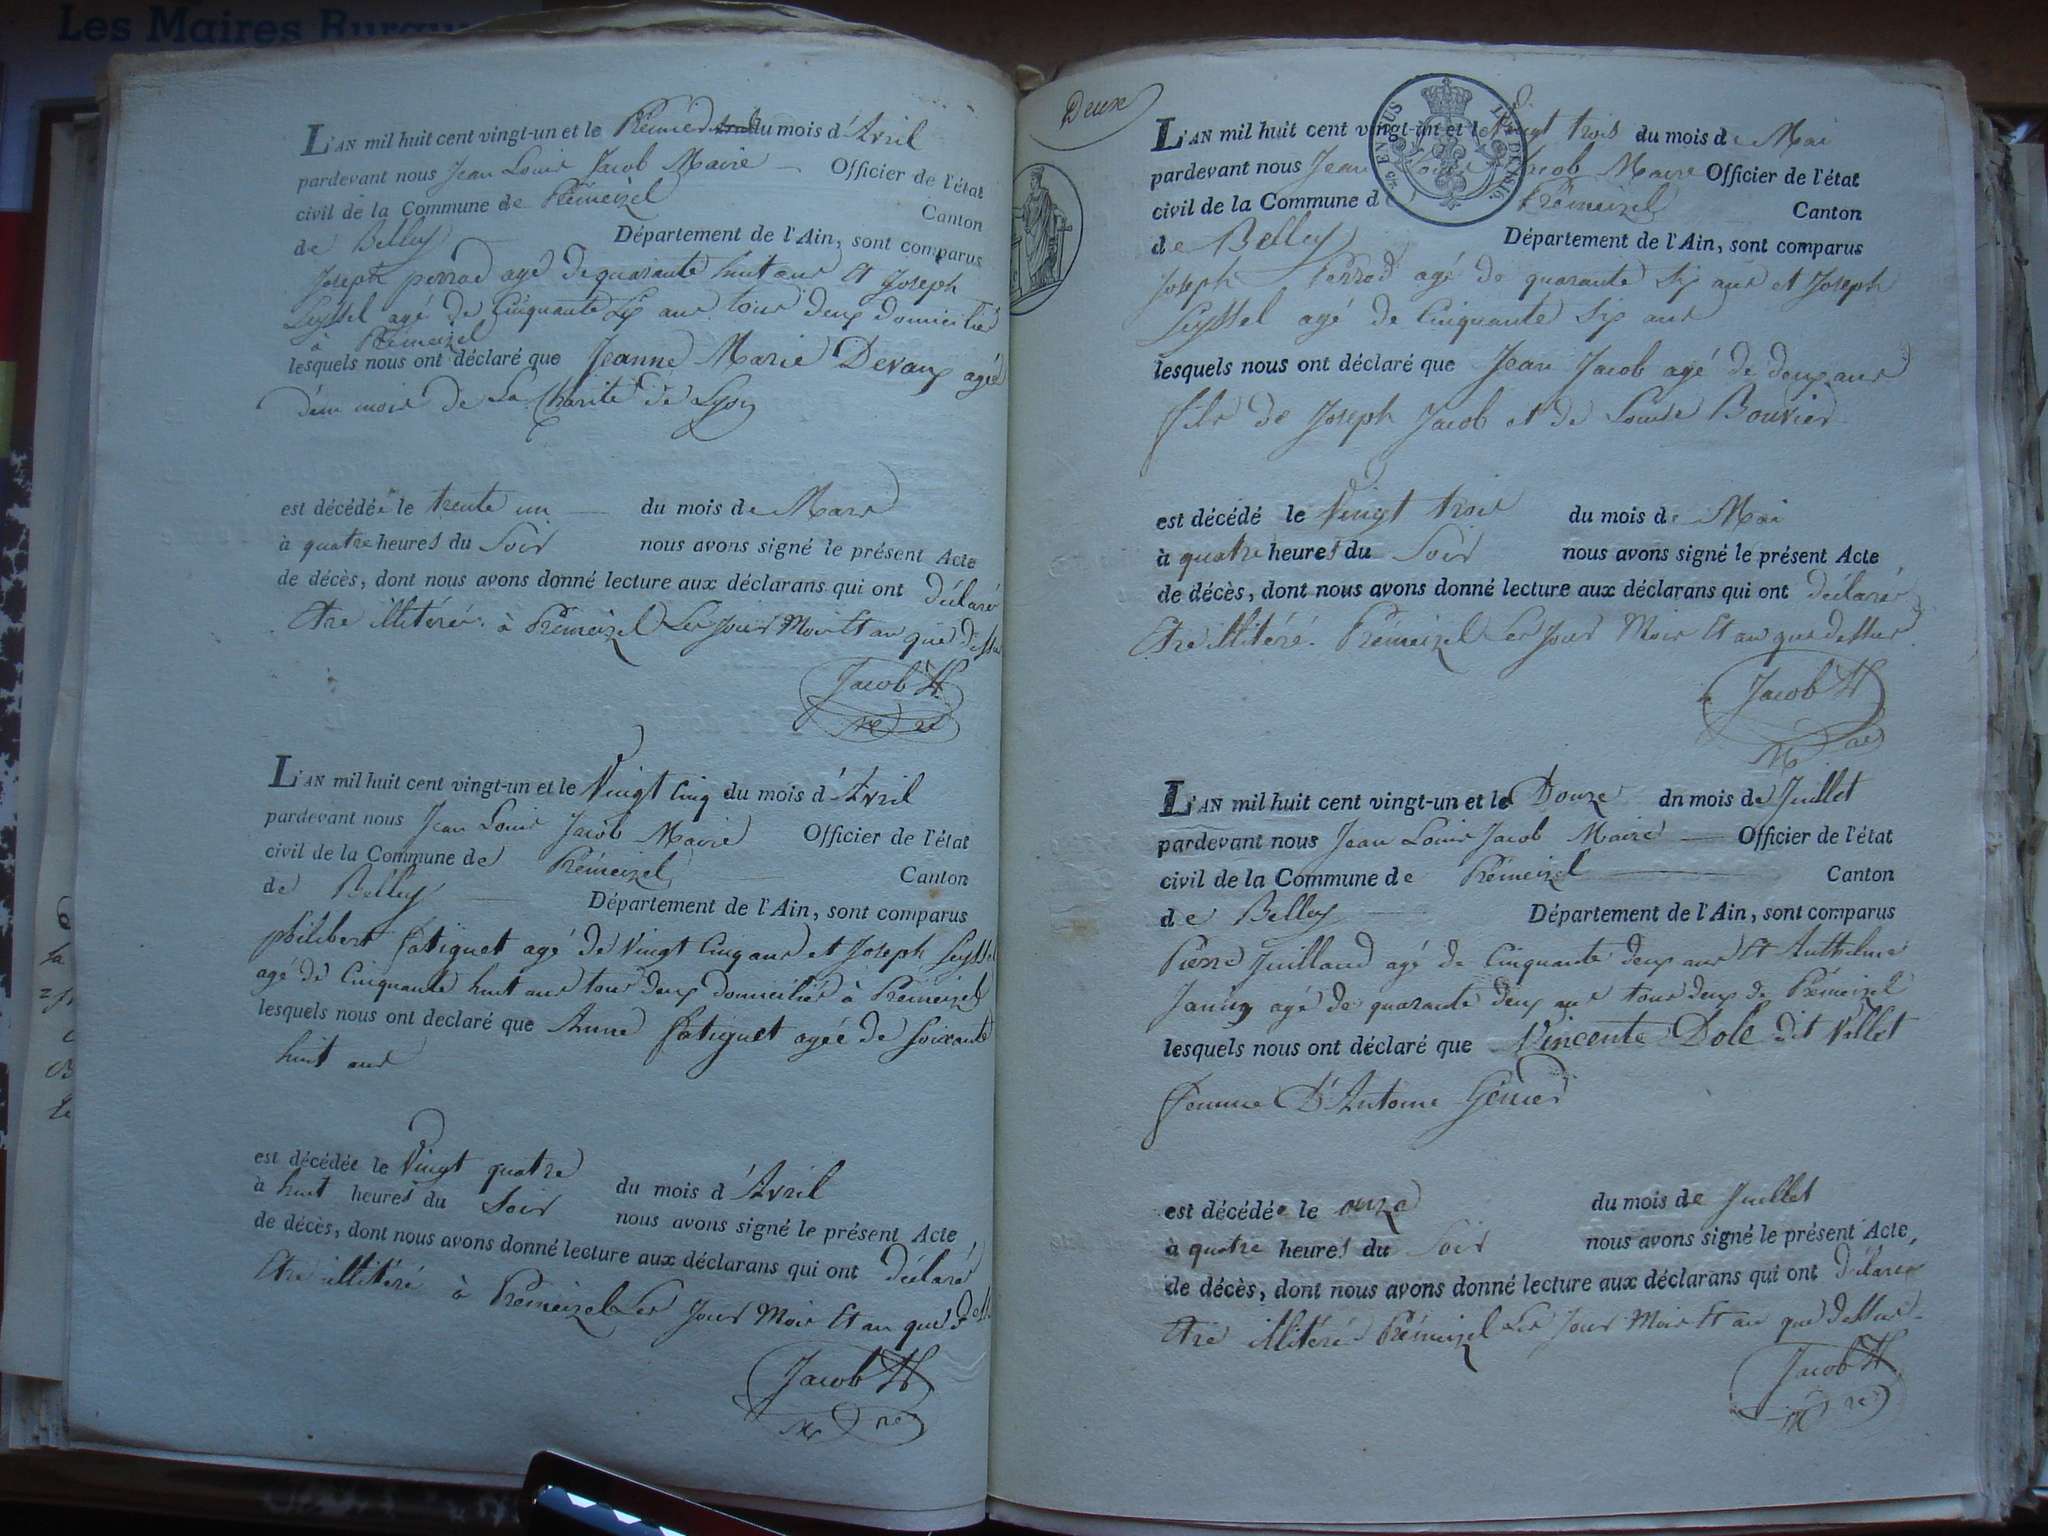 Les Maires Ruraux
L'AN mil huit cent vingt-un et le Prémier du mois d'Avril
pardevant nous Jean Louis Jacob Maire Officier de l'état
civil de la Commune de Prémeizel Canton
de Belley Département de l'Ain, sont comparus
Joseph perrod agé de quarante huit ans et Joseph
Seyssel agé de Cinquante Six ans tous deux domicilié
à Prémeizel
lesquels nous ont déclaré que Jeanne Marie Devaux agée
d'un mois de La Charité de Lyon
est décédée le trente un du mois de Mars
à quatre heures du Soir nous avons signé le présent Acte
de décès, dont nous avons donné lecture aux déclarans qui ont déclaré
Etre illitéré à Prémeizel Les Jour Mois Et an que dessus
Jacob
L'AN mil huit cent vingt-un et le Vingt Cinq du mois d'Avril
pardevant nous Jean Louis Jacob Maire Officier de l'état
civil de la Commune de Prémeizel Canton
de Belley Département de l'Ain, sont comparus
philibert fatiguet agé de Vingt Cinq ans et Joseph Seyssel
agé de Cinquante huit ans tous deux domiciliés à Prémeizel
lesquels nous ont declaré que Anne fatiguet agée de Soixante
huit ans
est décédée le Vingt quatre du mois d'Avril
à huit heures du Soir nous avons signé le présent Acte
de décès, dont nous avons donné lecture aux déclarans qui ont déclaré
Etre illitéré à Prémeizel Les Jour Mois Et an que
Jacob
Deux
L'AN mil huit cent vingt-un et le Vingt trois du mois de Mai
pardevant nous Jean Louis Jacob Maire Officier de l'état
civil de la Commune de Prémeizel Canton
de Belley Département de l'Ain, sont comparus
Joseph Perrod agé de quarante Six ans et Joseph
Seyssel agé de Cinquante Six ans
lesquels nous ont déclaré que Jean Jacob agé de deux ans
fils de Joseph Jacob et de Louise Bouvier
est décédé le Vingt trois du mois de Mai
à quatre heures du Soir nous avons signé le présent Acte
de décès, dont nous avons donné lecture aux déclarans qui ont déclaré
Etre illitéré. Prémeizel Les Jour Mois Et an que dessus
Jacob
L'AN mil huit cent vingt-un et le Douze dn mois de Juillet
pardevant nous Jean Louis Jacob Maire Officier de l'état
civil de la Commune de Prémeizel Canton
de Belley Département de l'Ain, sont comparus
Pierre Juilland agé de Cinquante deux ans Et Anthelme
Janin agé de quarante deux ans tous deux de Prémeizel
lesquels nous ont déclaré que Vincente Dole dit Vollet
femme D'Antoine Génier
est décédée le onze du mois de Juillet
à quatre heures du Soir nous avons signé le présent Acte,
de décès, dont nous avons donné lecture aux déclarans qui ont déclaré
Etre illitéré Prémeizel Les Jour Mois Et an que dessus
Jacob